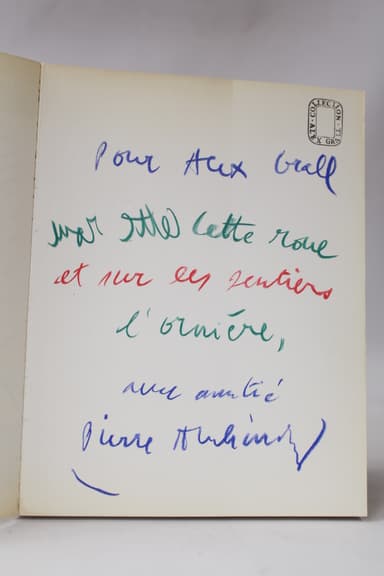 COLLECTION
Pour Alex Grall
cette roue
et sur les sentiers
l'ornière,
avec amitié
Pierre Alechinsky